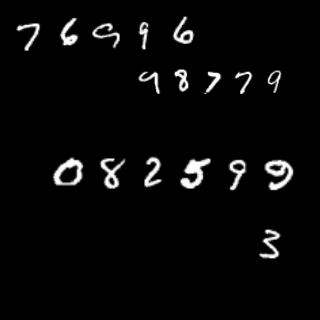 76996
98779
082599
3